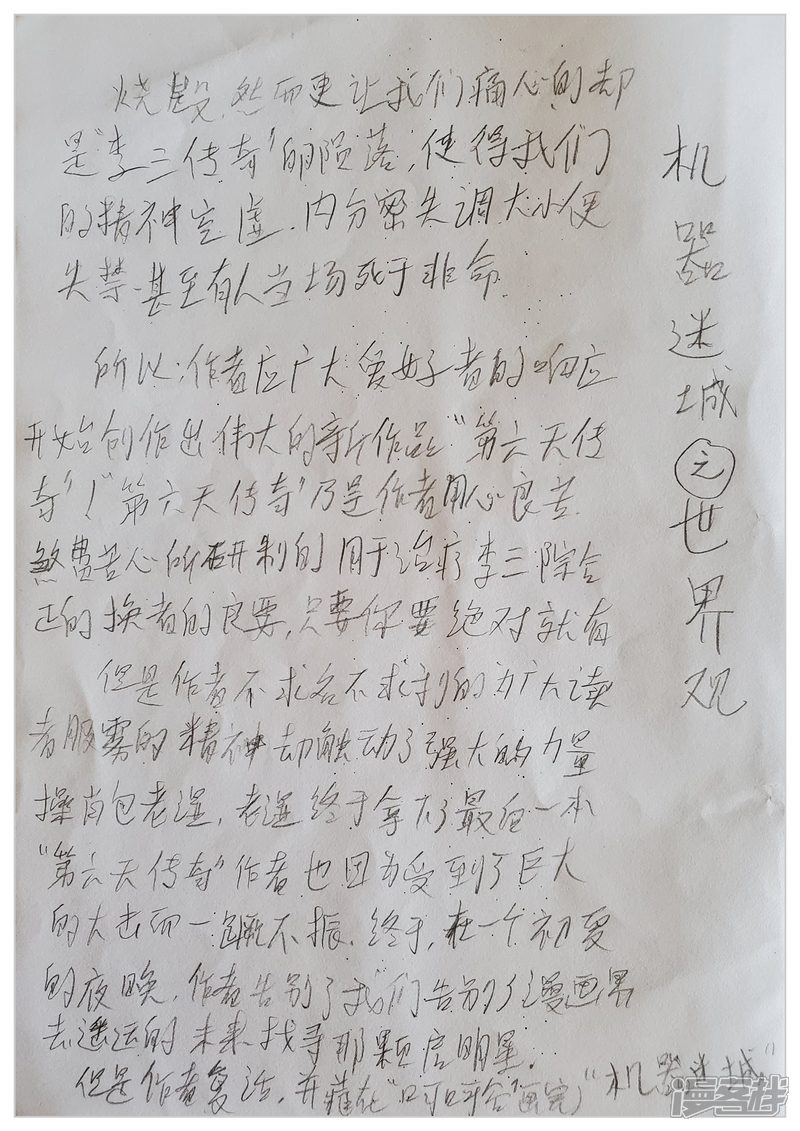 烧毁,然而更让我们痛心的却
是"李三传奇"的陨落,使得我们
的精神空虚.内分密失调大小便
失禁.甚至有人当场死于非命.
所以:作者应广大爱好者的响应
开始创作出伟大的新作品:"第六天传
奇"!"第六天传奇"乃是作者用心良苦.
煞费苦心所研制的用于治疗李三综合
正的换者的良要,只要你要绝对就有
但是作者不求名不求利的为广大读
者服雾的精神却触动了强大的力量
操肖包老湿,老湿终于拿下了最后一本
"第六天传奇"作者也因为受到了巨大
的大击而一蹶不振.终于,在一个初夏
的夜晚,作者告别了我们告别了漫画界
去遥远的未来找寻那颗启明星.
但是作者复活,并藏在"叮叮合"画完"机器迷城"
机器迷城之世界观
漫客栈